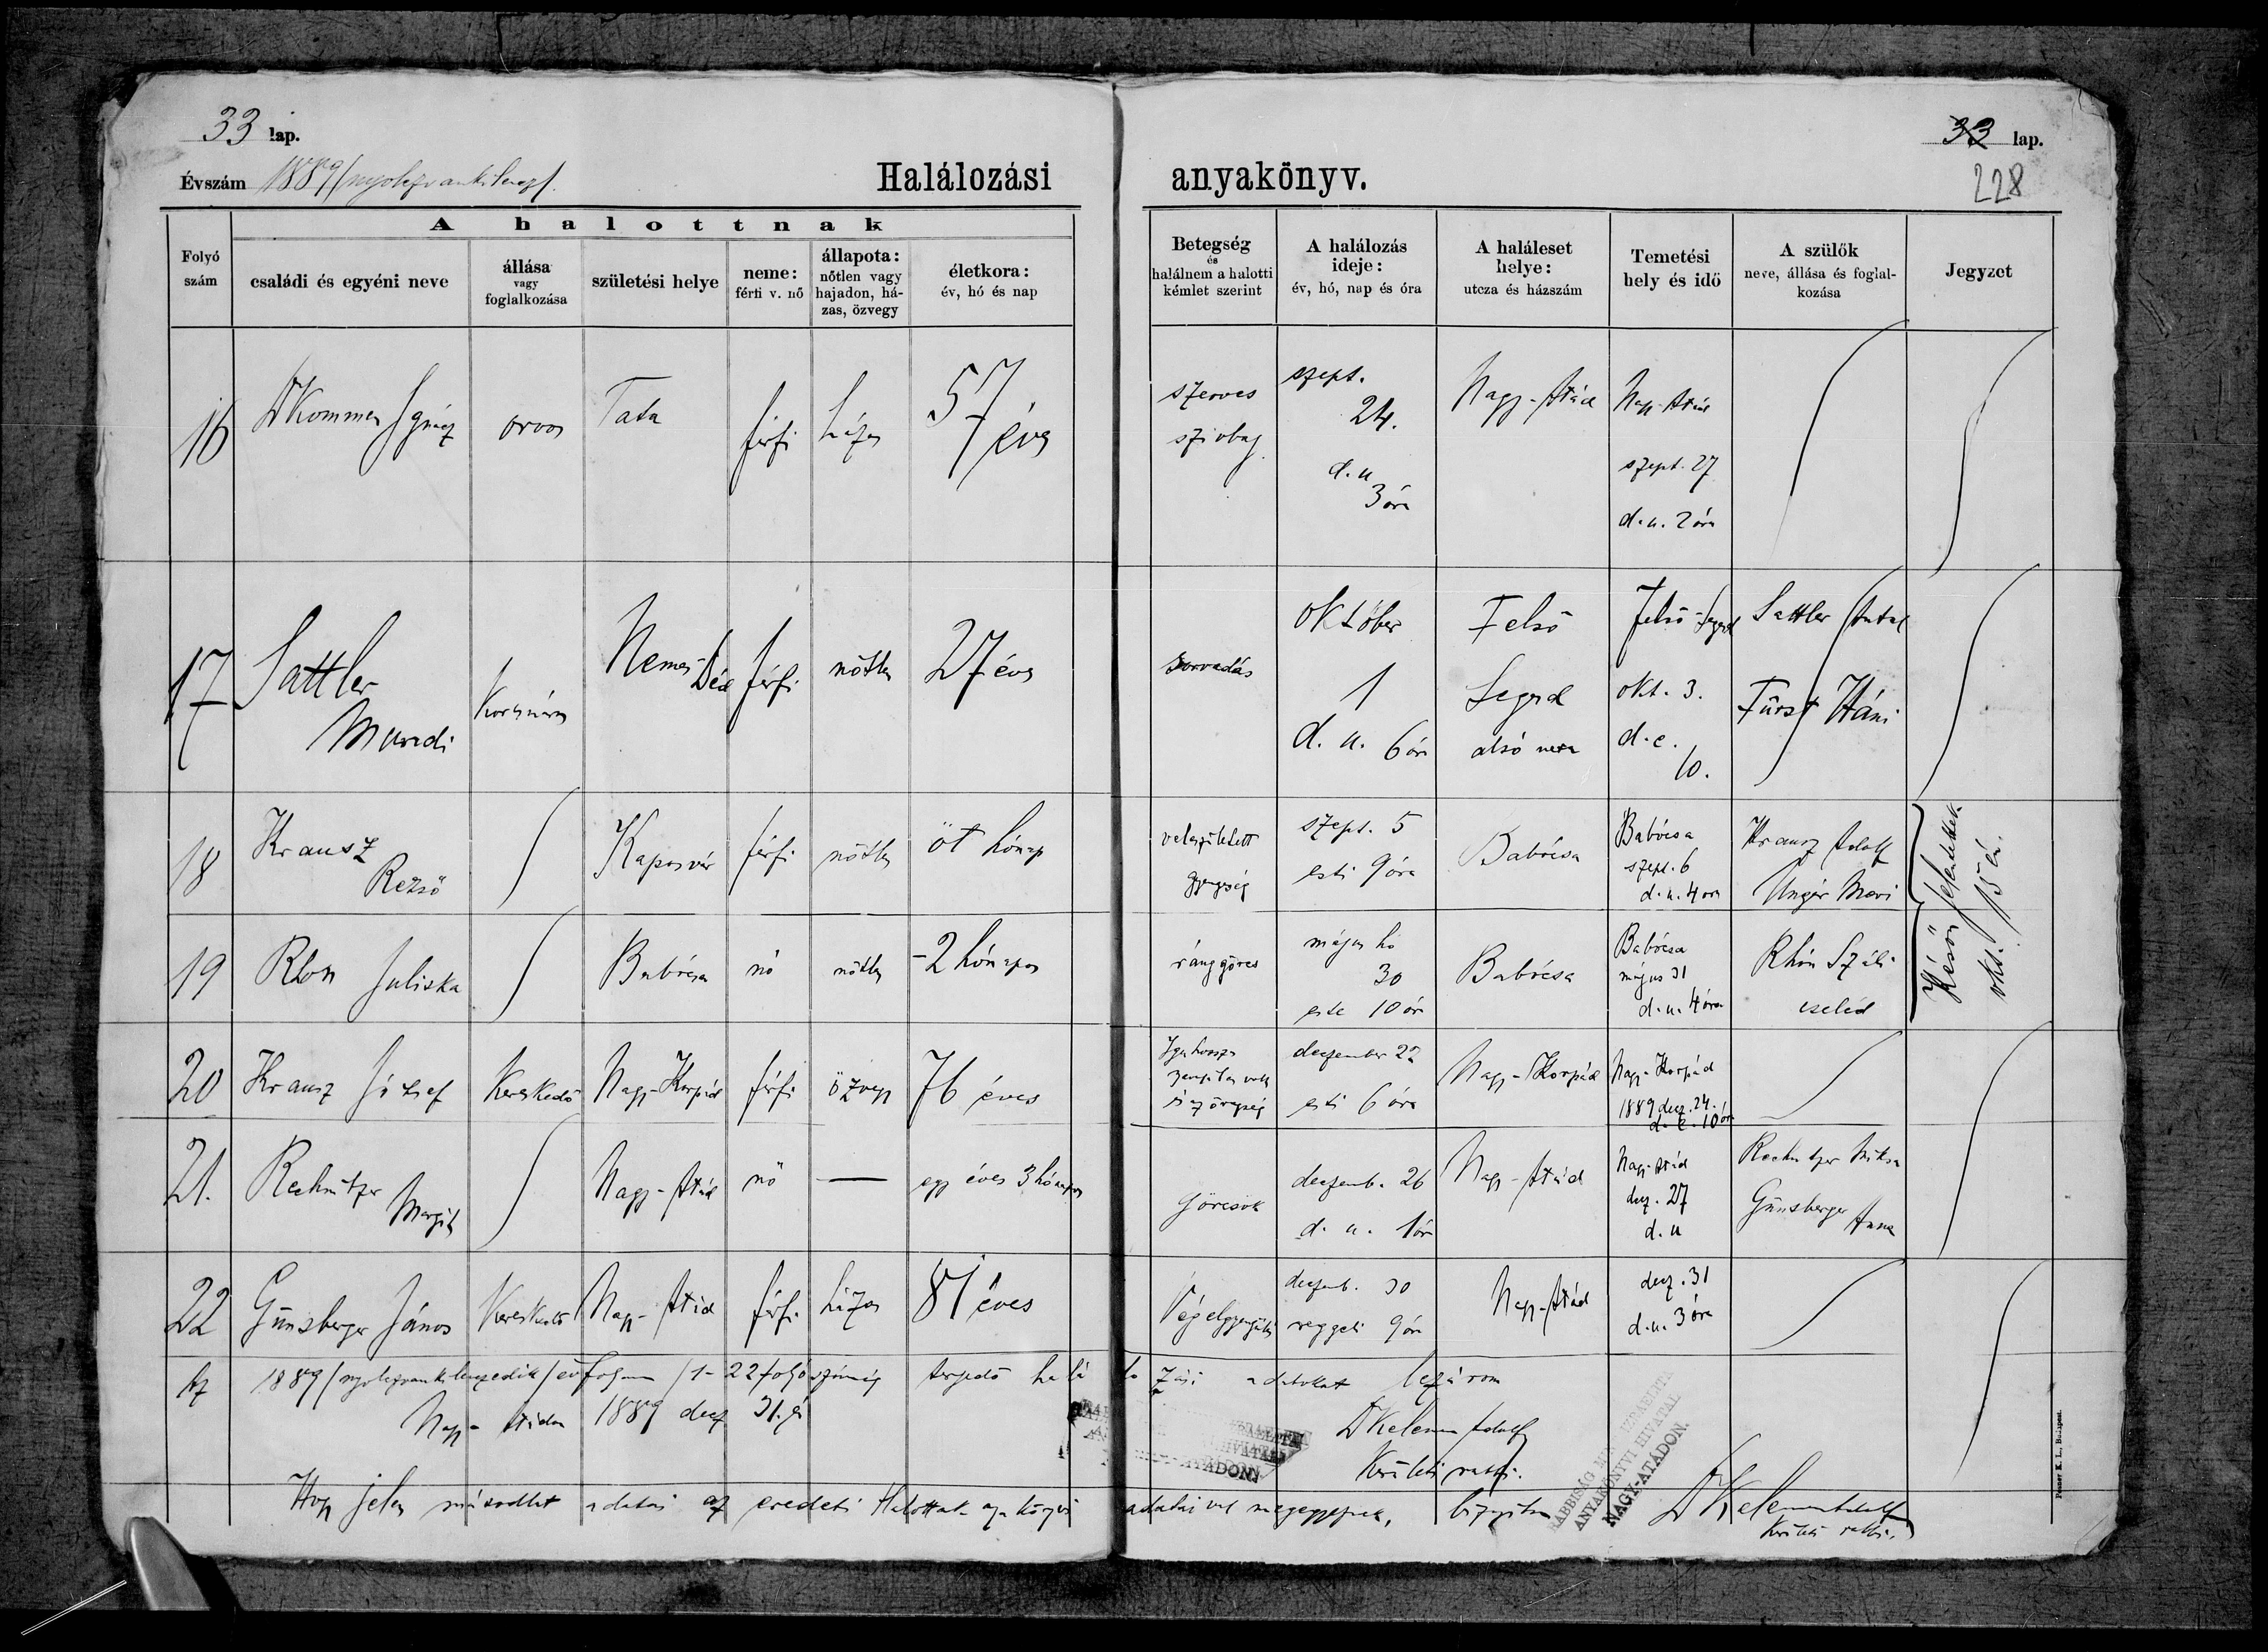 33 lap.
33 lap.
228
Évszám 1889/nyolczvankilencz/.
Halálozási anyakönyv.
A halottnak
Folyó szám
családi és egyéni neve
állása vagy foglalkozása
születési helye
neme: férfi v. nő
állapota: nőtlen vagy hajadon, házas, özvegy
életkora: év, hó és nap
Betegség és halálnem a halotti kémlet szerint
A halálozás ideje: év, hó, nap és óra
A haláleset helye: utcza és házszám
Temetési hely és idő
A szülők neve, állása és foglalkozása
Jegyzet
16 Dr Kommen Ignácz orvos Tata férfi házas 57 éves
szerves szivbaj szept. 24. d.u 3 óra Nagy-Atád Nagy-Atád szept. 27 d.u. 2 óra
17 Sattler Muredi Korcsmáros Nemes-Déd férfi nőtlen 27 éves
sorvadás október 1 d. u. 6 óra Felső Segesd alsó utcza Felső-Segesd okt. 3. d.e. 10. Sattler Antal Fürst Háni
18 Krausz Rezső Kaposvár férfi nőtlen öt hónap
veleszületett gyengeség szept. 5 esti 9 óra Babócsa Babócsa szept. 6 d.u. 4 óra Krausz Adolf Ungár Mari
19 Rhon Juliska Babócsa nő nőtlen -2 hónapos
ránggörcs május hó 30 este 10 óra Babócsa Babócsa május 31 d.u. 4 óra Rhón Száli cseléd
Későn jelentettek okt. 15 én.
20 Krausz József Kereskedő Nagy-Korpád férfi özvegy 76 éves
deczember 22 esti 6 óra Nagy-Korpád Nagy-Korpád 1889 decz. 24. d. e. 10 óra
21. Rechnitzer Margit Nagy-Atád nő — egy éves 3 hónapos
görcsök deczemb. 26 d. u. 1 óra Nagy-Atád Nagy-Atád decz. 27 d.u Rechnitzer Miksa Günsberger Anna
22 Günsberger János Kereskedő Nagy-Atád férfi házas 81 éves
Végelgyengülés deczemb. 30 reggeli 9 óra Nagy-Atád decz. 31 d.u. 3 óra
Az 1889/nyolczvankilenczedik/ év folyam /1-22 folyó számig terjedő halálozási adatokat lezárom
Nagy-Atádon 1889 decz 31. én
Dr Kelemen Adolf
Kerületi rabbi.
Hogy jelen másodlat adatai az eredeti Halottak anyakönyvi adataival megegyeznek, bizonyítom
Dr Kelemen Adolf
Kerületi rabbi.
ANYAKÖNYVI HIVATAL
NAGY-ATÁDON.